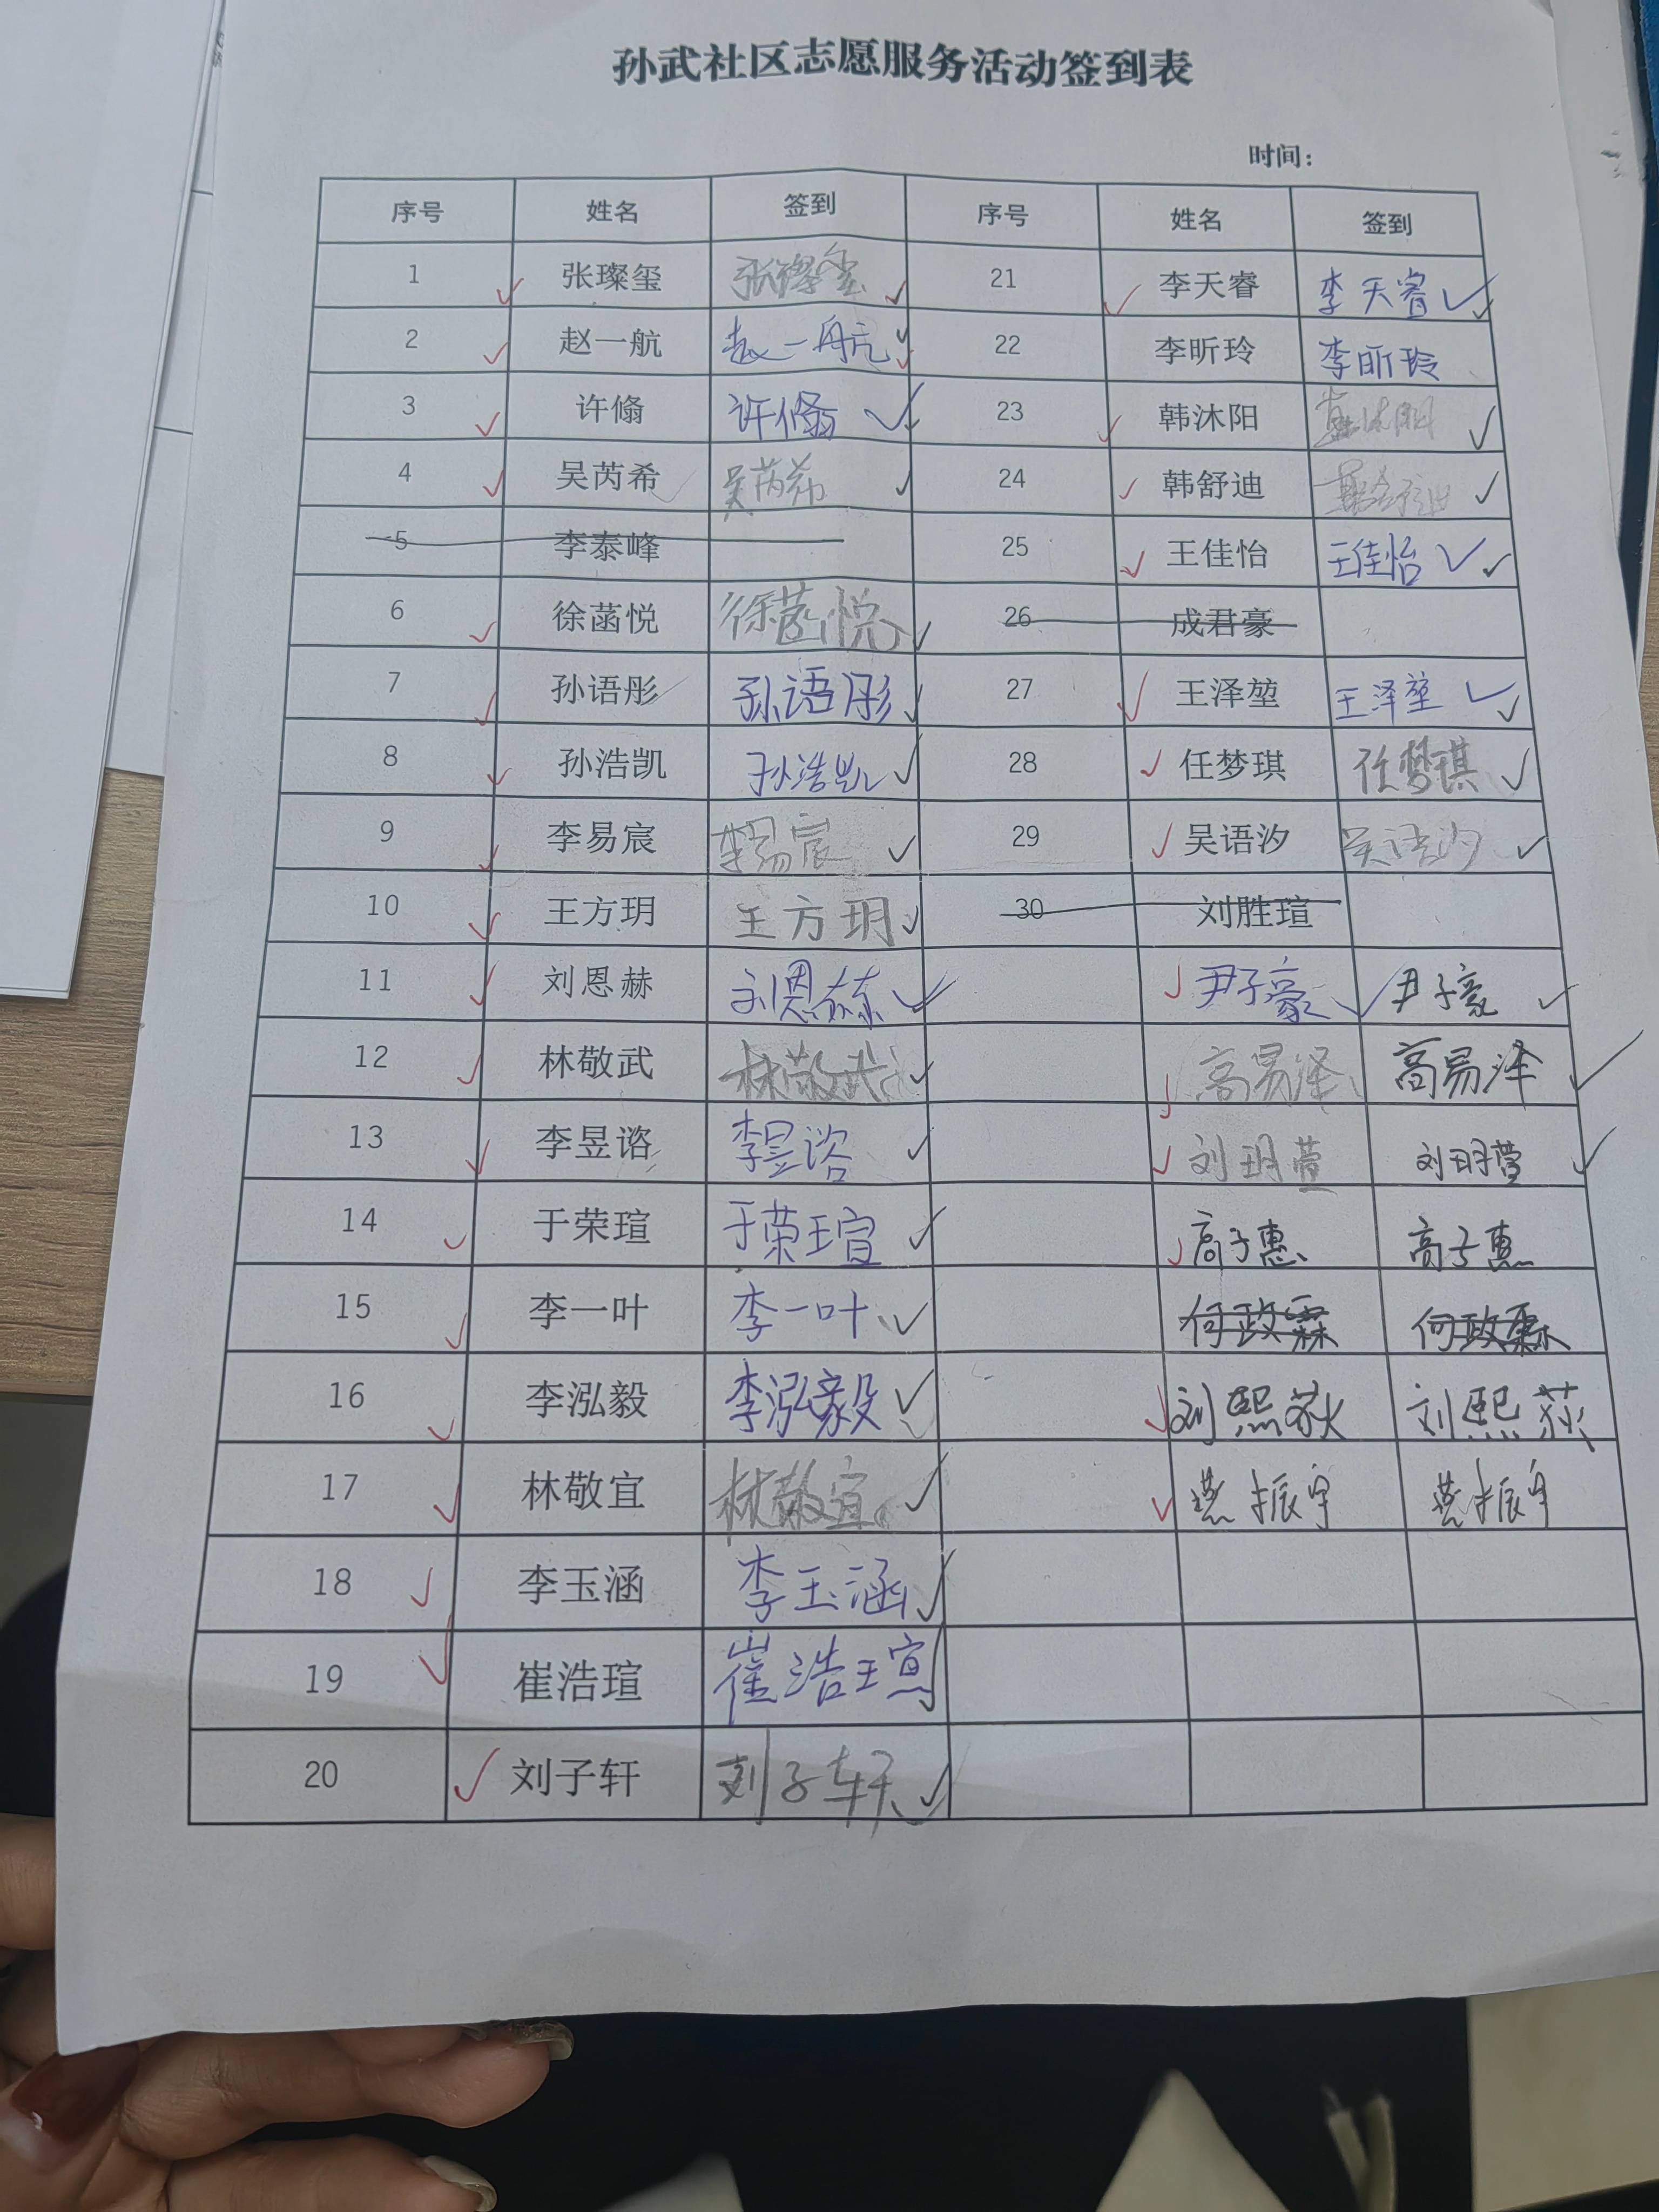 孙武社区志愿服务活动签到表
时间：
序号 姓名 签到 序号 姓名 签到
1 张璨玺 张璨玺 21 李天睿 李天睿
2 赵一航 赵一航 22 李昕玲 李昕玲
3 许翛 许翛 23 韩沐阳
4 吴芮希 吴芮希 24 韩舒迪
5 李泰峰 25 王佳怡 王佳怡
6 徐菡悦 徐菡悦 26 成君豪
7 孙语彤 孙语彤 27 王泽堃 王泽堃
8 孙浩凯 孙浩凯 28 任梦琪 任梦琪
9 李易宸 李易宸 29 吴语汐 吴语汐
10 王方玥 王方玥 30 刘胜瑄
11 刘恩赫 刘恩赫 尹子豪 尹子豪
12 林敬武 林敬武 高易泽 高易泽
13 李昱谘 李昱谘 刘玥萱 刘玥萱
14 于荣瑄 于荣瑄 高子惠 高子惠
15 李一叶 李一叶 何政霖 何政霖
16 李泓毅 李泓毅 刘熙荻 刘熙荻
17 林敬宜 林敬宜 燕振宇 燕振宇
18 李玉涵 李玉涵
19 崔浩瑄 崔浩瑄
20 刘子轩 刘子轩